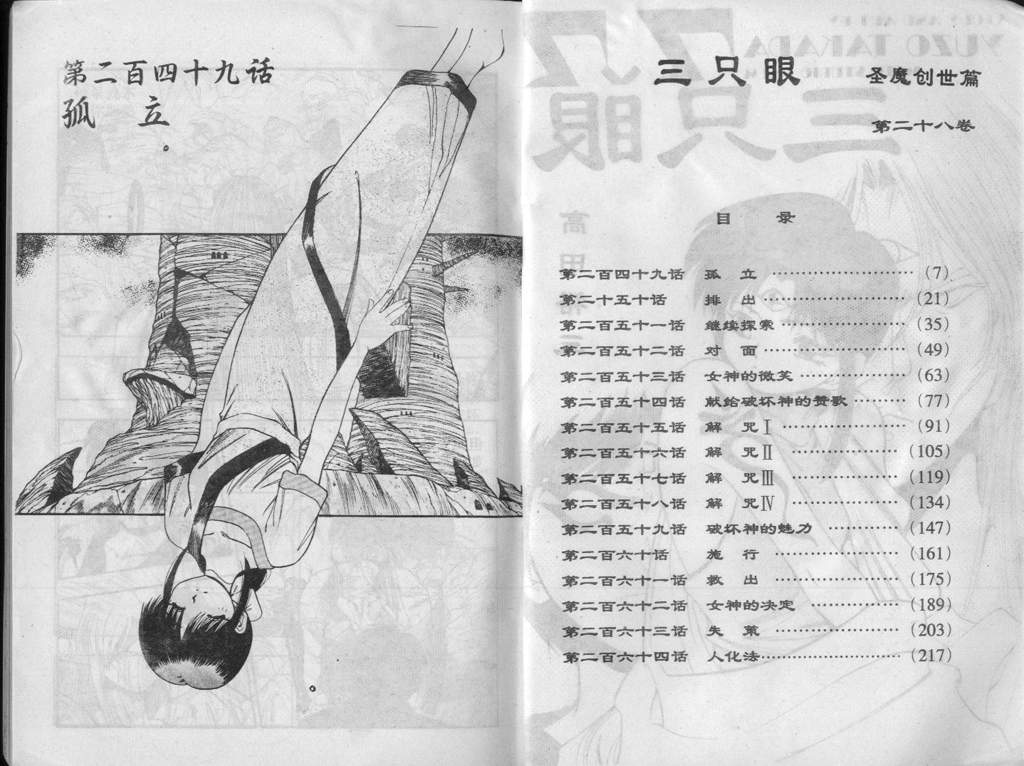 第二百四十九话
孤 立
三只眼 圣魔创世篇
第二十八卷
目 录
第二百四十九话 孤 立 ……………………(7)
第二十五十话 排 出 ……………………(21)
第二百五十一话 继续探索 …………………(35)
第二百五十二话 对 面 ……………………(49)
第二百五十三话 女神的微笑 ………………(63)
第二百五十四话 献给破坏神的赞歌 ………(77)
第二百五十五话 解 咒Ⅰ …………………(91)
第二百五十六话 解 咒Ⅱ …………………(105)
第二百五十七话 解 咒Ⅲ …………………(119)
第二百五十八话 解 咒Ⅳ …………………(134)
第二百五十九话 破坏神的魅力 ……………(147)
第二百六十话 施 行 ……………………(161)
第二百六十一话 救 出 …………………(175)
第二百六十二话 女神的决定 ………………(189)
第二百六十三话 失 策 …………………(203)
第二百六十四话 人化法……………………(217)